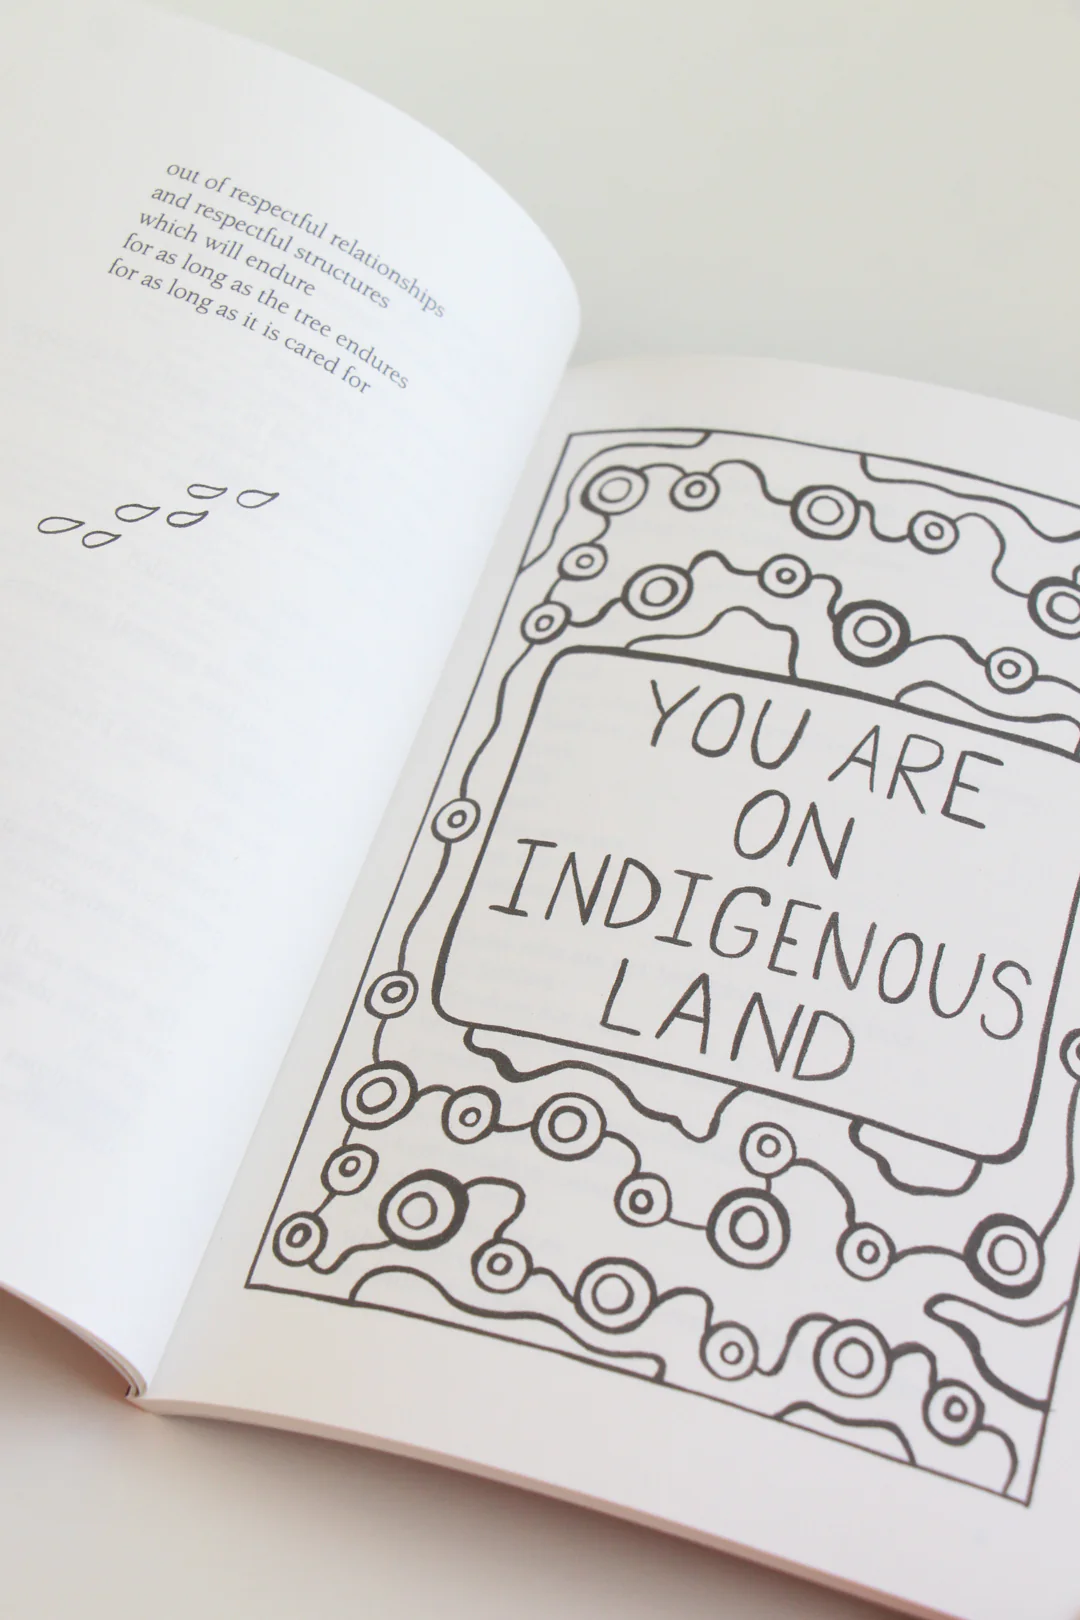 out of respectful relationships
and respectful structures
which will endure
for as long as the tree endures
for as long as it is cared for
YOU ARE
ON
INDIGENOUS
LAND